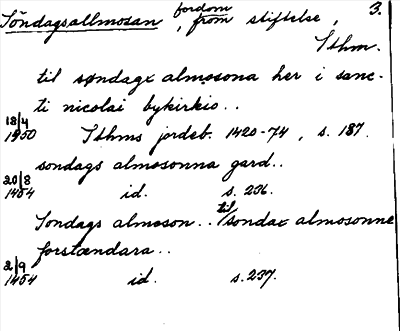 Söndagsallmosan, fordom from stiftelse, 3.
Sthm.
til søndagx almosona her i sanc-
ti nicolai bykirkio..
18/4
1450 Sthms jordeb. 1420-74, s. 187.
sondags almosonna gard..
20/8
1454 id. s. 236.
Sondags almoson.. til sondax almosonne
forstændara..
2/9
1454 id. s. 237.